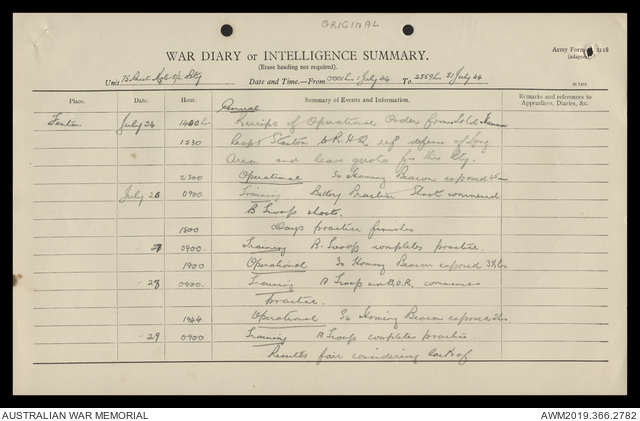 ORIGINAL
WAR DIARY or INTELLIGENCE SUMMARY.
Army Form 2118
(Erase heading not required).
(adapted).
Unit 75 Aust Bty Date and Time.—From 0001hrs 1 July 44 To 2359hrs 31 July 44
Place. Date. Hour. Summary of Events and Information. Remarks and references to Appendices, Diaries, &c.
General
Fenton July 24 1400hrs Receipt of Operational Orders from
1230 Capt Stanton to R.H.Q. ref defence of Long
Area and leave quota for this Bty.
2300 Operational Sg Homing Beacon exposed
July 26 0900 Training Battery Practice Shoot commenced
B Troop shoots.
1800 Days practice finishes
27 0900. Training B. Troop completes practice.
1900 Operational Sg Homing Beacon exposed 3½hrs
" 28 0900. Training A Troop commences
practice.
1944 Operational Sg Homing Beacon exposed 2hrs.
" 29 0900 Training A Troop completes practice.
Results fair considering lack of
AUSTRALIAN WAR MEMORIAL AWM2019.366.2782